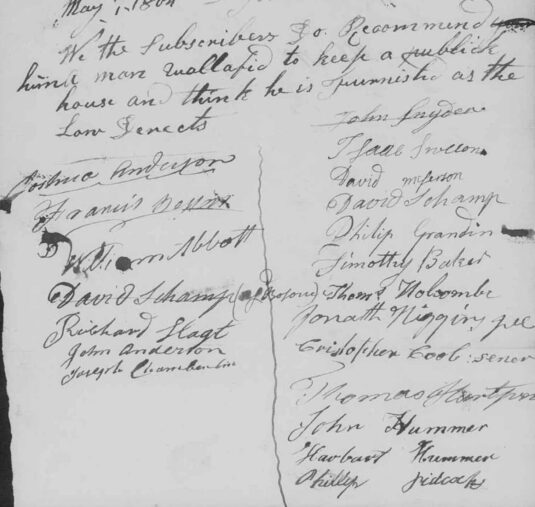 May 1, 1804
We the Subscribers Do Recommend
hind man wallafid to keep a publick
house and think he is furnishd as the
Law Derects
Joshua Anderson
Francis
William Abbott
David Schamp
Richard Hagt
John Anderson
Joseph Chamberlin
John Snyder
Isaac
David
David Schamp
Philip Grandin
Timothy Baker
Thoms Holcombe
Jonath Higgins
Cristopher Cool: sener
Thomas
John Hummer
Harbart Hummer
Phillip Sidcock